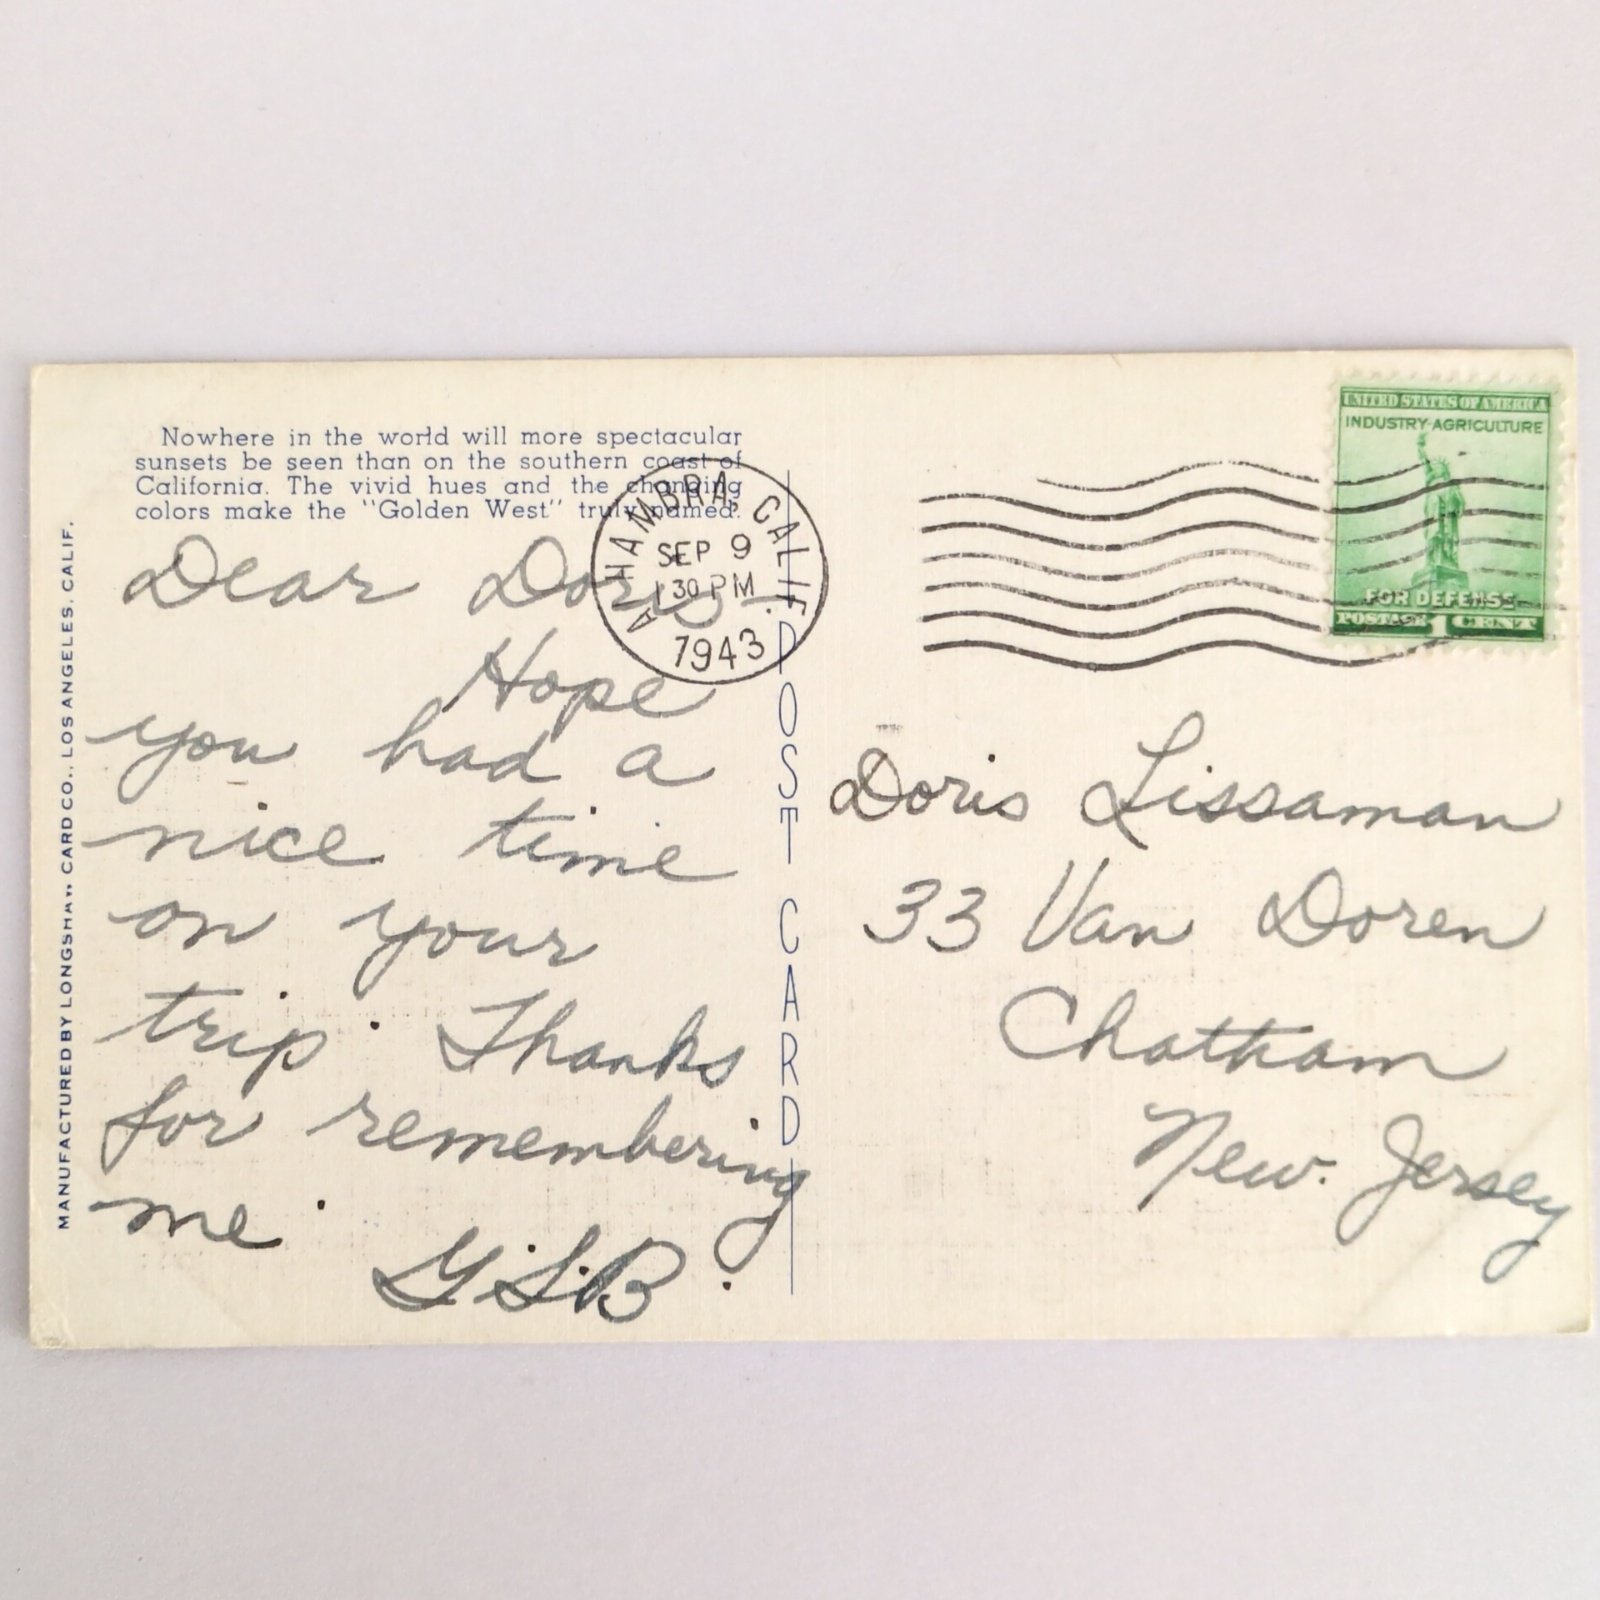 Nowhere in the world will more spectacular
sunsets be seen than on the southern coast of
California. The vivid hues and the changing
colors make the "Golden West" truly named.
Dear Doris—
Hope
you had a
nice time
on your
trip. Thanks
for remembering
me.
G.S.B.
MANUFACTURED BY LONGSHAW CARD CO., LOS ANGELES, CALIF.
POST CARD
ALHAMBRA, CALIF.
SEP 9
1 30 PM
1943
UNITED STATES OF AMERICA
INDUSTRY·AGRICULTURE
FOR DEFENSE
POSTAGE 1 CENT
Doris Lissaman
33 Van Doren
Chatham
New. Jersey